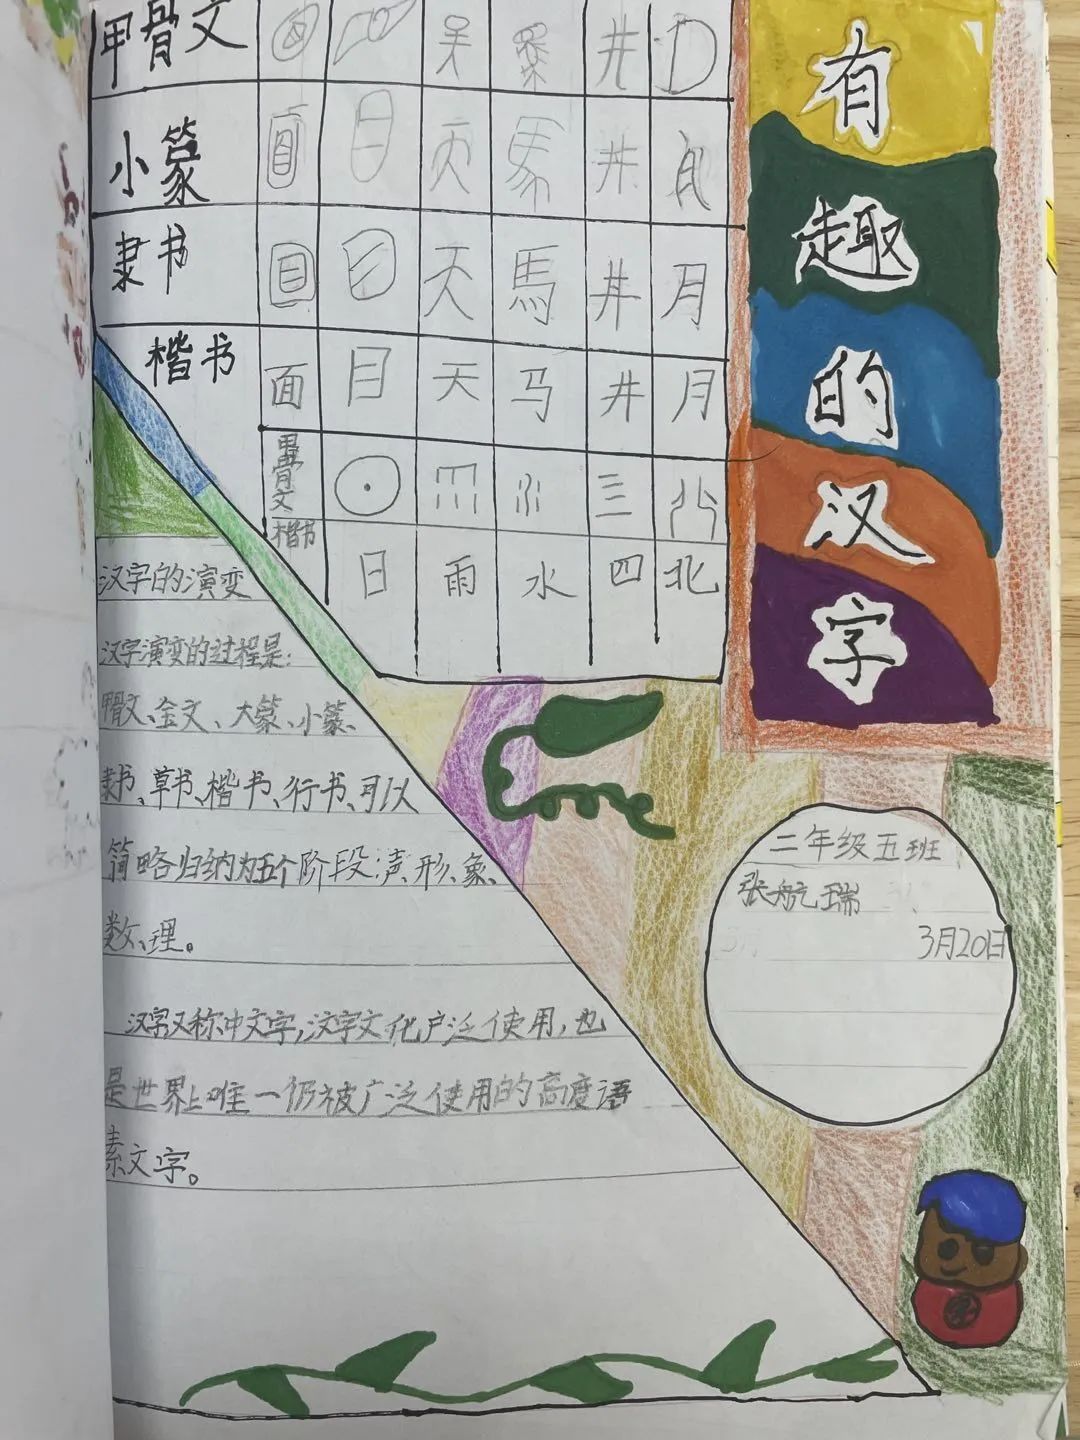 有趣的汉字
甲骨文
小篆
隶书
楷书 面 目 天 马 井 月
甲骨文
楷书 日 雨 水 四 北
汉字的演变
汉字演变的过程是:
甲骨文、金文、大篆、小篆、
隶书、草书、楷书、行书、可以
简略归纳为五个阶段:声、形、象、
数、理。
汉字又称中文字,汉字文化广泛使用,也
是世界上唯一仍被广泛使用的高度语
素文字。
二年级五班
张航瑞
3月20日